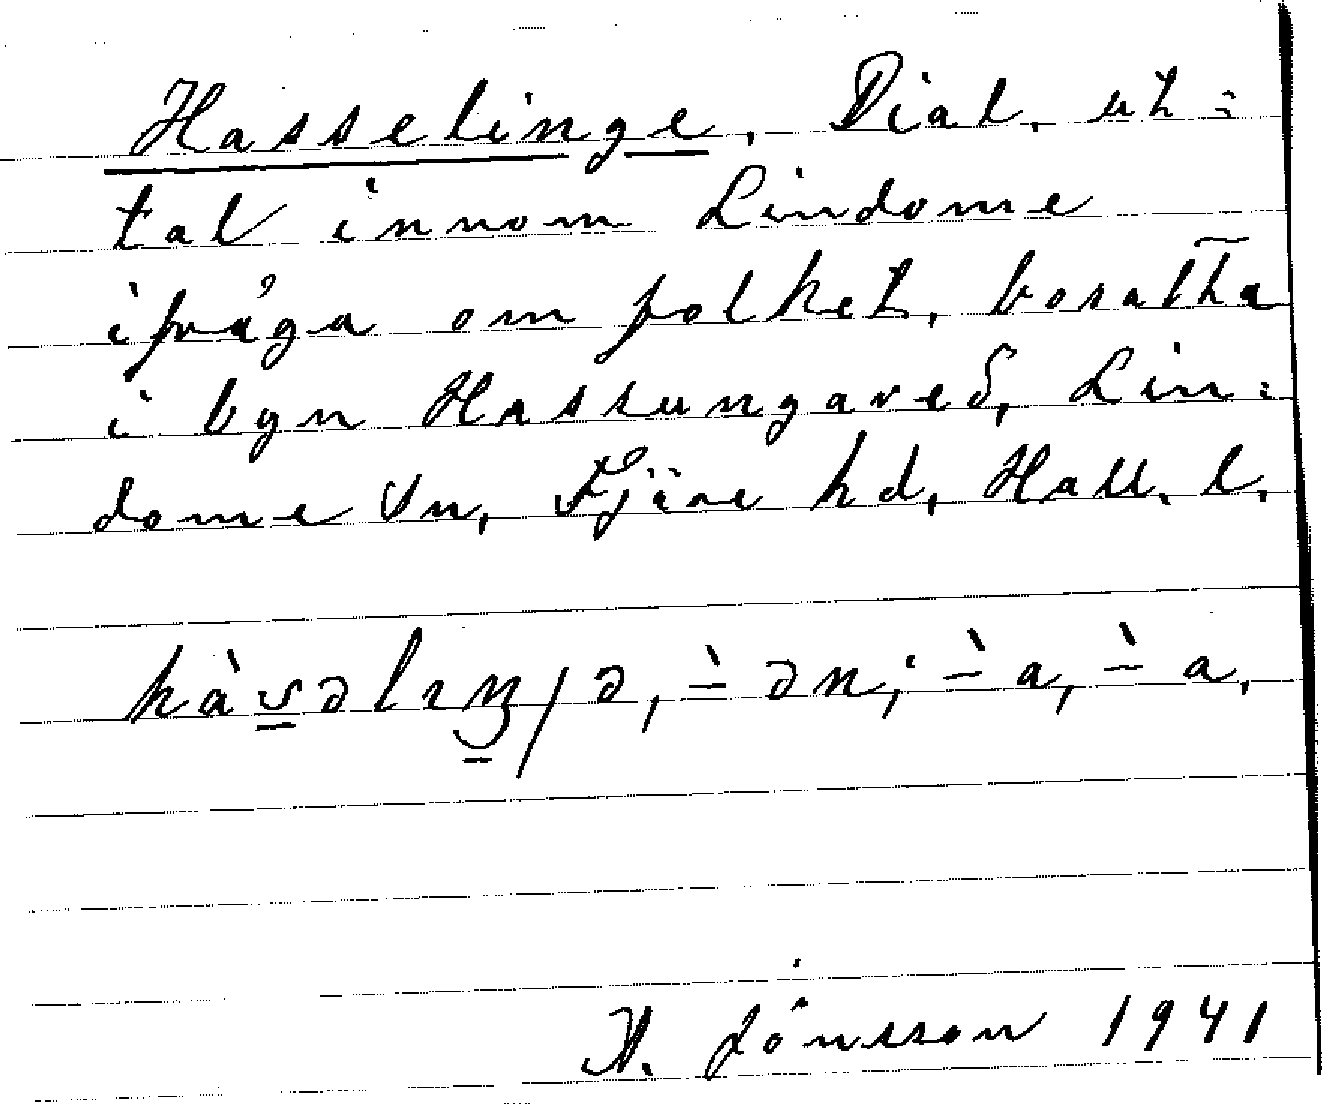 Hasselinge. Dial. ut=
tal innom Lindome
ifråga om folket, bosatta
i byn Hassungared, Lin=
dome sn, Fjäre hd, Hall. l.
hàsəlıŋ/ə, -̀ ən; -̀ a, -̀ a.
A. Jönsson 1941